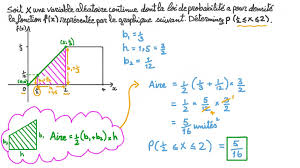 Soit X une variable aléatoire continue dont la loi de probabilité a pour densité
la fonction f(x) représentée par le graphique suivant. Déterminez P(½ ≤ X ≤ 2).
f(x)
b₁ = 1/3
h = 1,5 = 3/2
b₂ = 1/12
Aire = 1/2 (1/3 + 1/12) × 3/2
= 1/2 × 5/12 × 3/2
= 5/16 unités²
Aire = 1/2 (b₁ + b₂) × h
b₁
h
P(½ ≤ X ≤ 2) = 5/16